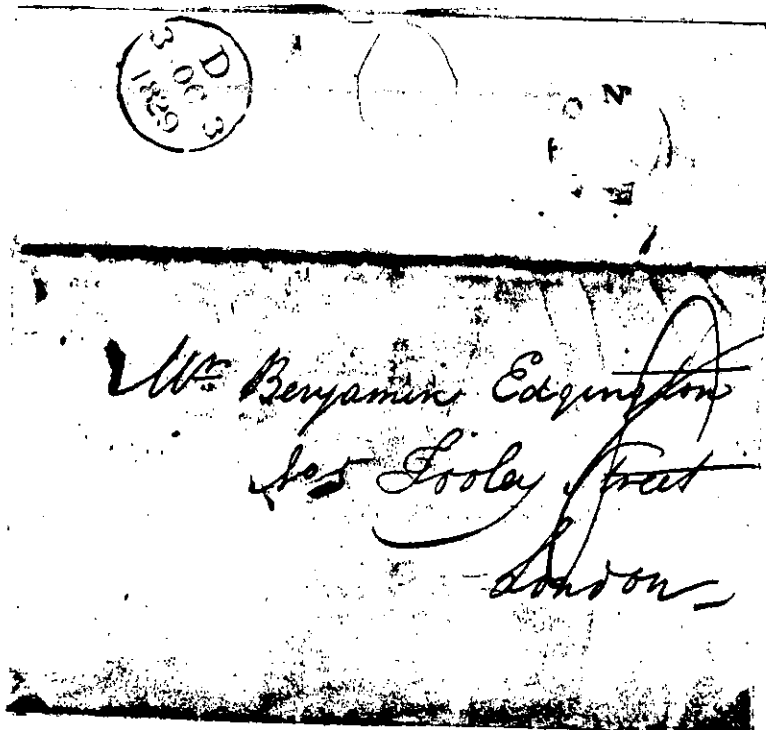 D
3 OC 3
1829
N
Mr Benjamin Edgington
No 5 Tooley Street
London